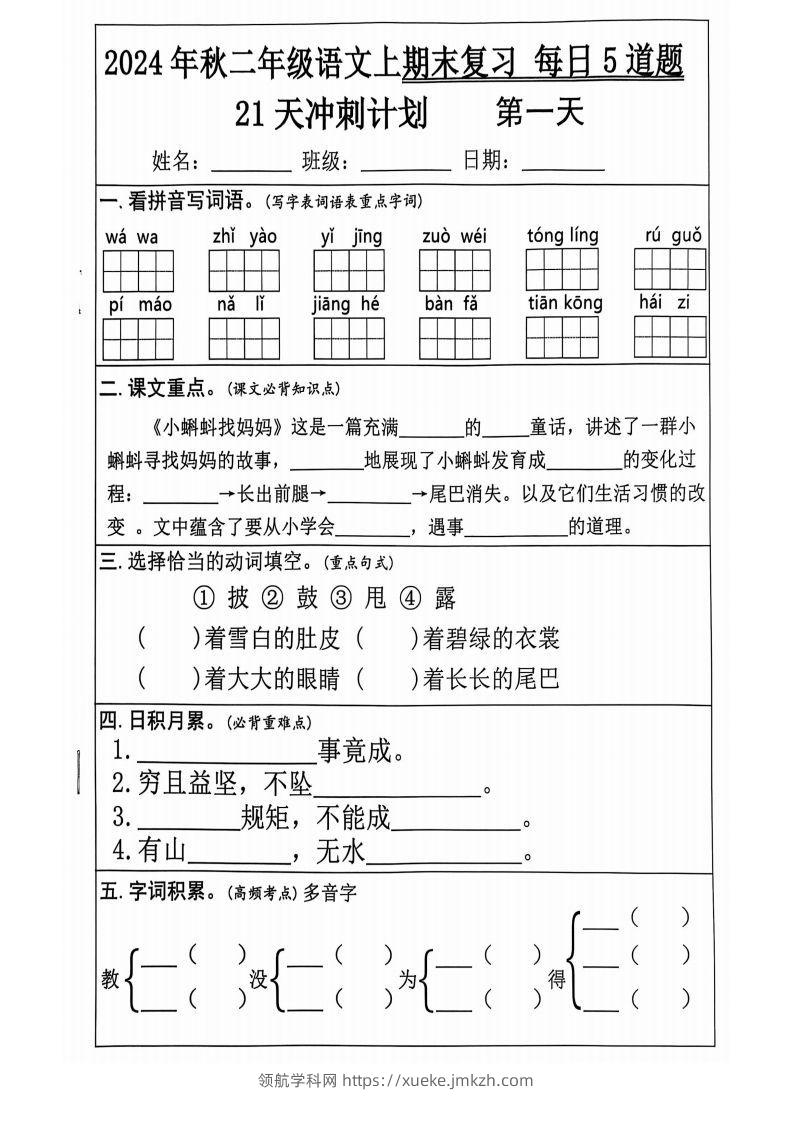 2024年秋二年级语文上期末复习 每日5道题
21天冲刺计划 第一天
姓名：______ 班级：______ 日期：______
一、看拼音写词语。(写字表词语表重点字词)
wá wa zhǐ yào yǐ jīng zuò wéi tóng líng rú guǒ
pí máo nǎ lǐ jiāng hé bàn fǎ tiān kōng hái zi
二.课文重点。(课文必背知识点)
《小蝌蚪找妈妈》这是一篇充满______的____童话，讲述了一群小
蝌蚪寻找妈妈的故事，______地展现了小蝌蚪发育成______的变化过
程：______→长出前腿→______→尾巴消失。以及它们生活习惯的改
变 。文中蕴含了要从小学会______，遇事________的道理。
三.选择恰当的动词填空。(重点句式)
① 披 ② 鼓 ③ 甩 ④ 露
( )着雪白的肚皮 ( )着碧绿的衣裳
( )着大大的眼睛 ( )着长长的尾巴
四.日积月累。(必背重难点)
1.____________事竟成。
2.穷且益坚，不坠____________。
3.________规矩，不能成__________。
4.有山________，无水____________。
五.字词积累。(高频考点)多音字
___( )
教 ___( ) 没 ___( ) 为 ___( ) 得 ___( )
___( ) ___( ) ___( ) ___( )
领航学科网 https://xueke.jmkzh.com